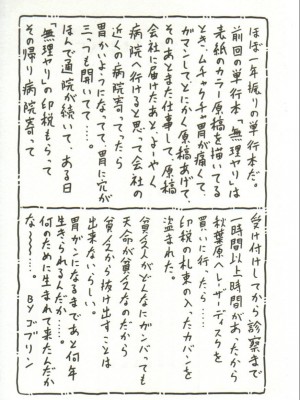 ほぼ一年振りの単行本だ。
前回の単行本「無理ヤリ」は
表紙のカラー原稿を描いてる
とき、ムチャクチャ胃が痛くて、
ガマンしてとにかく原稿あげて、
そのあとまた仕事して、原稿
会社に届けたあとようやく
病院へ行けると思って会社の
近くの病院寄ってったら
胃がいようになってて、胃に穴が
三つも開いてて…。
ほんで通院が続いて、ある日
「無理ヤリ」の印税もらって
その帰り病院寄って
受け付けしてから診察まで
一時間以上時間があったから
秋葉原へレーザーディスクを
買いに行ったら……
印税の札束の入ったカバンを
盗まれた。
貧乏人がどんなにガンバっても
天命が貧乏なのだから
貧乏から抜け出すことは
出来ないらしい。
胃がこんなになるまであと何年
生きられるんだか……。
何のために生まれて来たんだか
な〜〜〜。 BYゴブリン